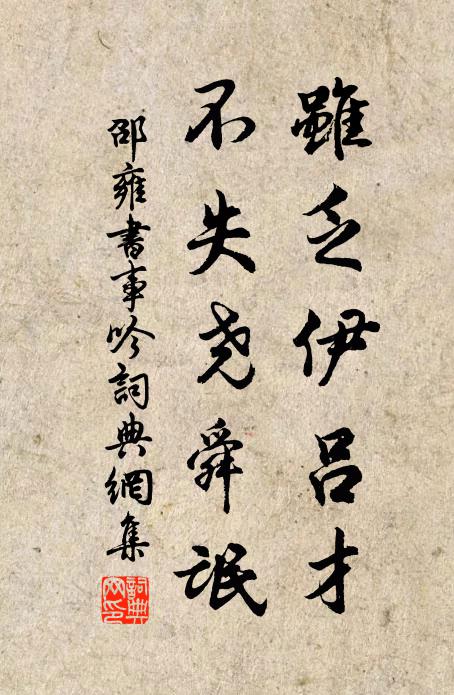 雖乏伊呂才
不失尧舜氓
邵雍書事吟詞典網集
詞典网印